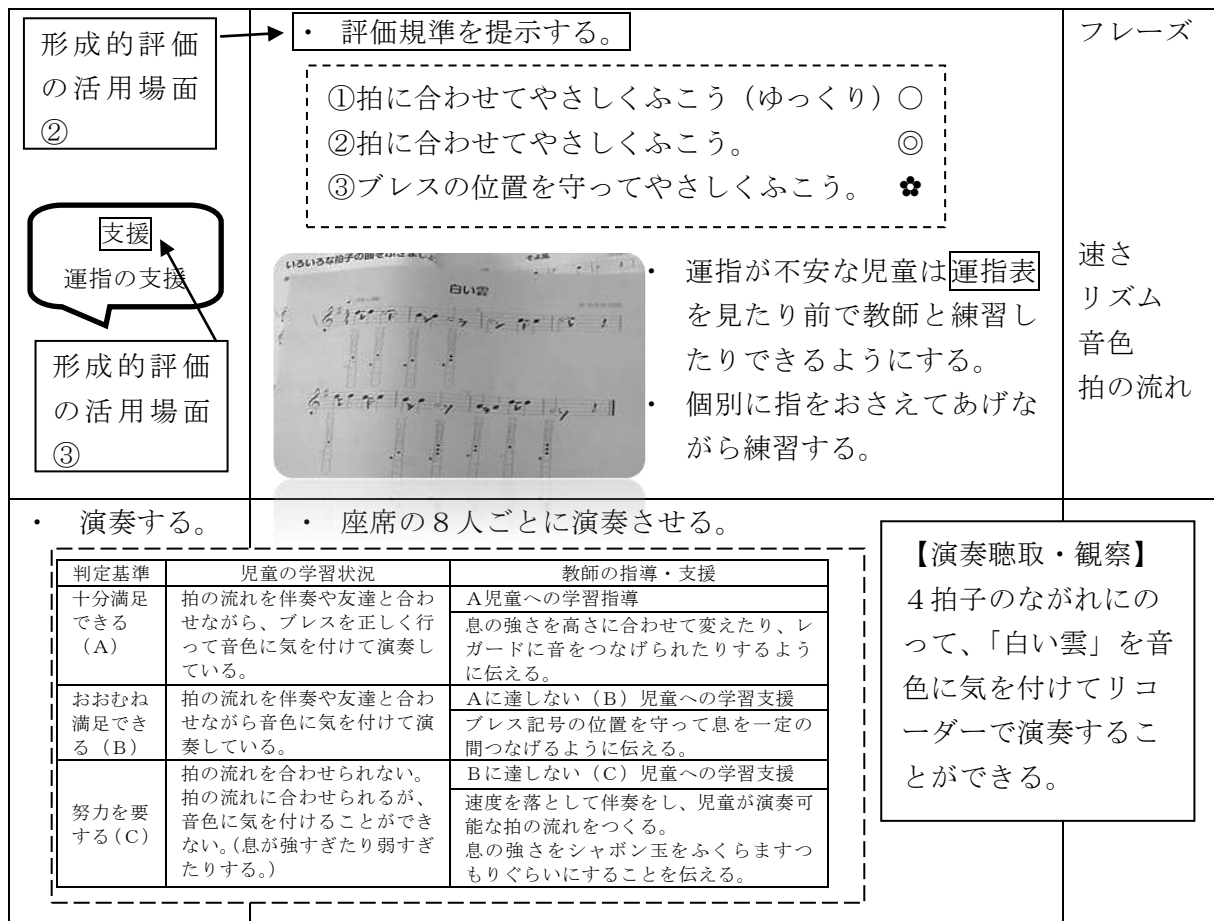 形成的評価
の活用場面
②
・ 評価規準を提示する。
フレーズ
①拍に合わせてやさしくふこう（ゆっくり）○
②拍に合わせてやさしくふこう。 ◎
③ブレスの位置を守ってやさしくふこう。 ✿
支援
運指の支援
形成的評価
の活用場面
③
白い雲
・ 運指が不安な児童は運指表
を見たり前で教師と練習し
たりできるようにする。
・ 個別に指をおさえてあげな
がら練習する。
速さ
リズム
音色
拍の流れ
・ 演奏する。
・ 座席の８人ごとに演奏させる。
判定基準
児童の学習状況
教師の指導・支援
十分満足
できる
（A）
拍の流れを伴奏や友達と合わ
せながら、ブレスを正しく行
って音色に気を付けて演奏し
ている。
A児童への学習指導
息の強さを高さに合わせて変えたり、レ
ガードに音をつなげられたりするよう
に伝える。
おおむね
満足でき
る（B）
拍の流れを伴奏や友達と合わ
せながら音色に気を付けて演
奏している。
Aに達しない（B）児童への学習支援
ブレス記号の位置を守って息を一定の
間つなげるように伝える。
努力を要
する(C)
拍の流れを合わせられない。
拍の流れに合わせられるが、
音色に気を付けることができ
ない。(息が強すぎたり弱すぎ
たりする。)
Bに達しない（C）児童への学習支援
速度を落として伴奏をし、児童が演奏可
能な拍の流れをつくる。
息の強さをシャボン玉をふくらますつ
もりぐらいにすることを伝える。
【演奏聴取・観察】
４拍子のながれにの
って、「白い雲」を音
色に気を付けてリコ
ーダーで演奏するこ
とができる。